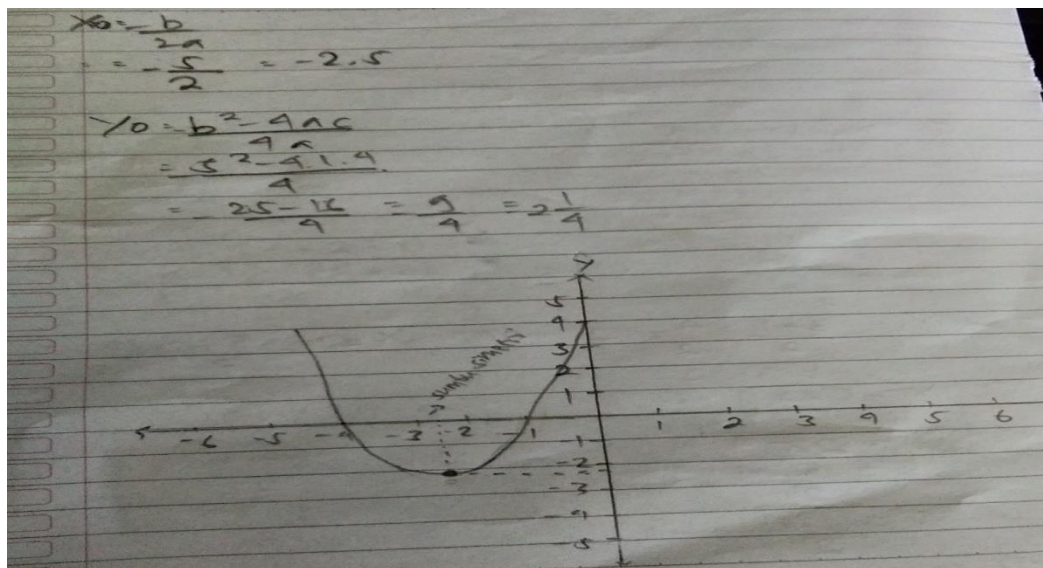 x₀ = -b/2a
= -5/2 = -2.5
y₀ = -b² - 4ac/4a
= -5² - 4.1.4/4
= -25-16/4 = 9/4 = 2 1/4
y
5
4
3
2
1
-6 -5 -4 -3 -2 -1 1 2 3 4 5 6
-1
-2
-3
-4
-5